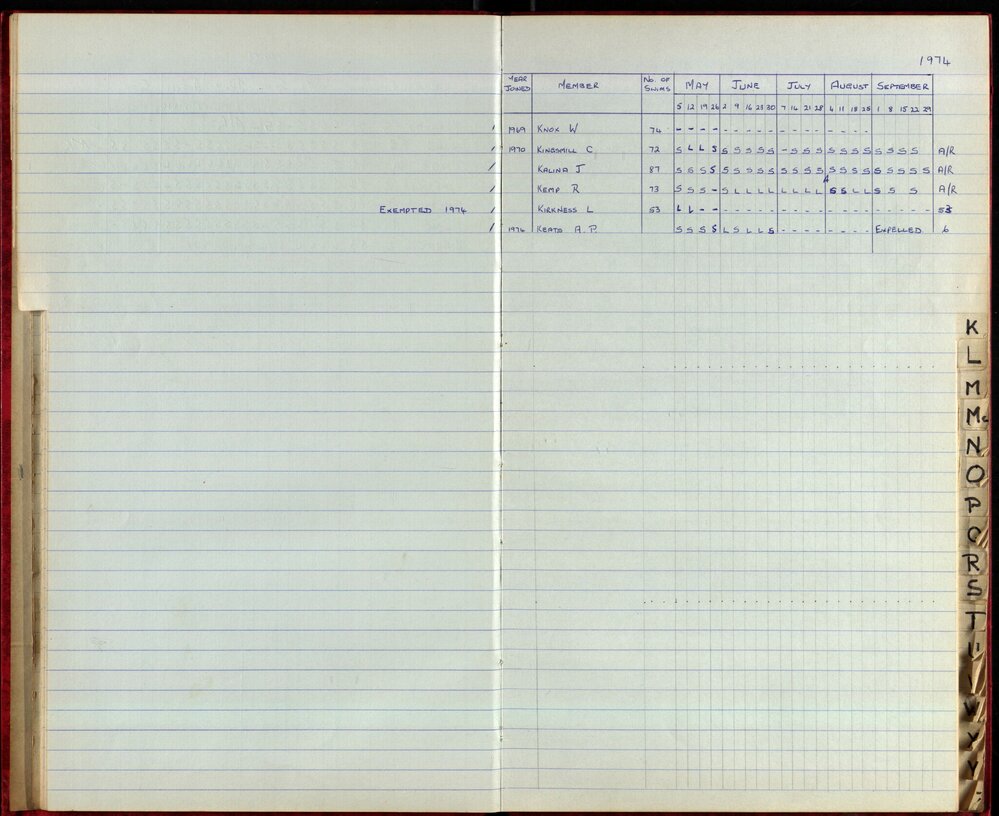 1974
YEAR JOINED MEMBER No. OF SWIMS MAY JUNE JULY AUGUST SEPTEMBER
5 12 19 26 2 9 16 23 30 7 14 21 28 4 11 18 25 1 8 15 22 29
1969 KNOX W 74 - - - - - - - - - - - - - - - - -
1970 KINGSMILL C 72 S L L S S S S S S - S S S S S S S S S S S A/R
KALINA J 87 S S S S S S S S S S S S S S S S S S S S S S A/R
KEMP R 73 S S S - S L L L L L L L L S S L L S S S A/R
EXEMPTED 1974 KIRKNESS L 53 L L - - - - - - - - - - - - - - - - - - - - 53
1974 KEATS A. P. S S S S L S L L S - - - - - - - - EXPELLED 6
K
L
M
Mc
N
O
P
R
S
T
U
W
Y